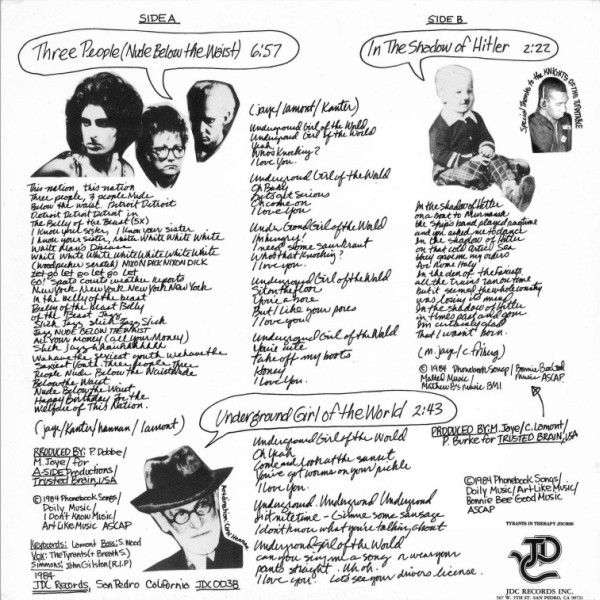 SIDE A
Three People (Nude Below the Waist) 6:57
This nation, this nation
Three people, 3 people Nude
Below the waist. Detroit Detroit
Detroit Detroit Detroit in
The Belly of the Beast (5X)
I know your sister, I know your sister
I know your sister, Mista White White White
White Man's Disease
White White White White White White White
(Woodpecker scratch) NIXON DICK NIXON DICK
Let go let go let go let
Go! Spats courts weather reports
New York New York New York New York
In the belly of the beast
Belly of the Beast Belly
of the Beast Jazz
Slick Jazz Slick Jazz Slick
Jazz NUDE BELOW THE WAIST
All your Money (all your Money)
Slick Jazz
We have the sexiest youth we have the
Sexiest Youth Three people Three
People Nude Below the Waist Nude
Below the Waist
Nude Below the Waist
Happy Birthday for the
Welfare of This Nation.
(jaye/Kanter/hannan/lamont)
PRODUCED BY: P. Dobbe/
M. Jaye/ for
A-SIDE Productions/
Trusted Brain, USA
© 1984 Phonebook Songs/
Doily Music/
I Don't Know Music/
Art Like Music ASCAP
Keyboards: Lamont Bass: S. Nood
Vox: The Tyrants (+ Breath S.)
Simmons: John Gilston (R.I.P.)
1984
JDC Records, San Pedro California JDC 0038
Underground Girl of the World 2:43
(jaye/lamont/Kanter)
Underground Girl of the World
Underground Girl of the World
Yeah
Who's Knocking?
I Love You.
Underground Girl of the World
Oh Baby
Let's get Serious
Oh come on
I Love You
Underground Girl of the World
I'm hungry!
I need some saurkraut
Who's that Knocking?
I love you.
Underground Girl of the World
Sit on the floor
You're a bore
But I like your pores
I love you!
Underground Girl of the World
You're cute
Take off my boots
Honey
I Love You.
Underground Girl of the World
Oh Yeah
Come and look at the sunset
You've got worms on your pickle
I Love You.
Underground. Underground Underground
Hit nite time - Gimme some sausage
I don't know what you're talking about
Underground Girl of the World
can you sing me a song or wear your
pants straight. Uh oh.
I love you. Lets see your drivers license.
SIDE B
In The Shadow of Hitler 2:22
Special Thanks to the KNIGHTS OF THE TURNTABLE
In the shadow of Hitler
on a boat to Murmansk
the ship's band played ragtime
and you asked me to dance
In the shadow of Hitler
on that cold Artic Sea
they gave me my orders
For Rome Italy
In the den of the Fascists
all the trains ran on time
But it seemed the whole country
was losing its mind
In the shadow of Hitler
in times past and gone
I'm curiously glad
That I wasn't born.
(m. jaye/c. friberg)
© 1984 Phonebook Songs/ Bonnie Bee Good
Matted Music/ Music ASCAP.
Matthew B's Music BMI
PRODUCED BY: M. Jaye/C. Lamont/
P. Burke for TRUSTED BRAIN, USA
© 1984 Phonebook Songs/
Doily Music/ Art Like Music/
Bonnie Bee Good Music
ASCAP
TYRANTS IN THERAPY JDC0038
JDC
JDC RECORDS INC.
567 W. 5TH ST. SAN PEDRO, CA 90731